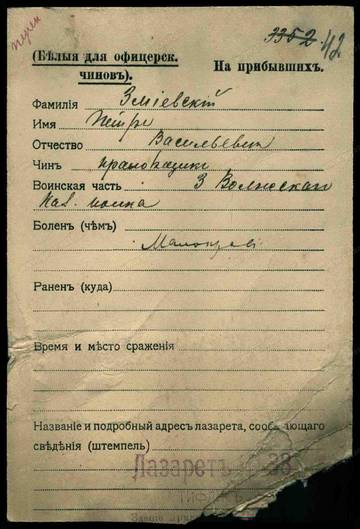 3352 42
(Бѣлыя для офицерск. чиновъ).
На прибывшихъ.
Фамилія Зміевскій
Имя Петръ
Отчество Васильевич
Чинъ прапорщикъ
Воинская часть 3 Волжскаго
Кав. полка
Боленъ (чѣмъ)
Раненъ (куда)
Время и мѣсто сраженія
Названіе и подробный адресъ лазарета, сообщающаго
свѣдѣнія (штемпель)
Лазаретъ